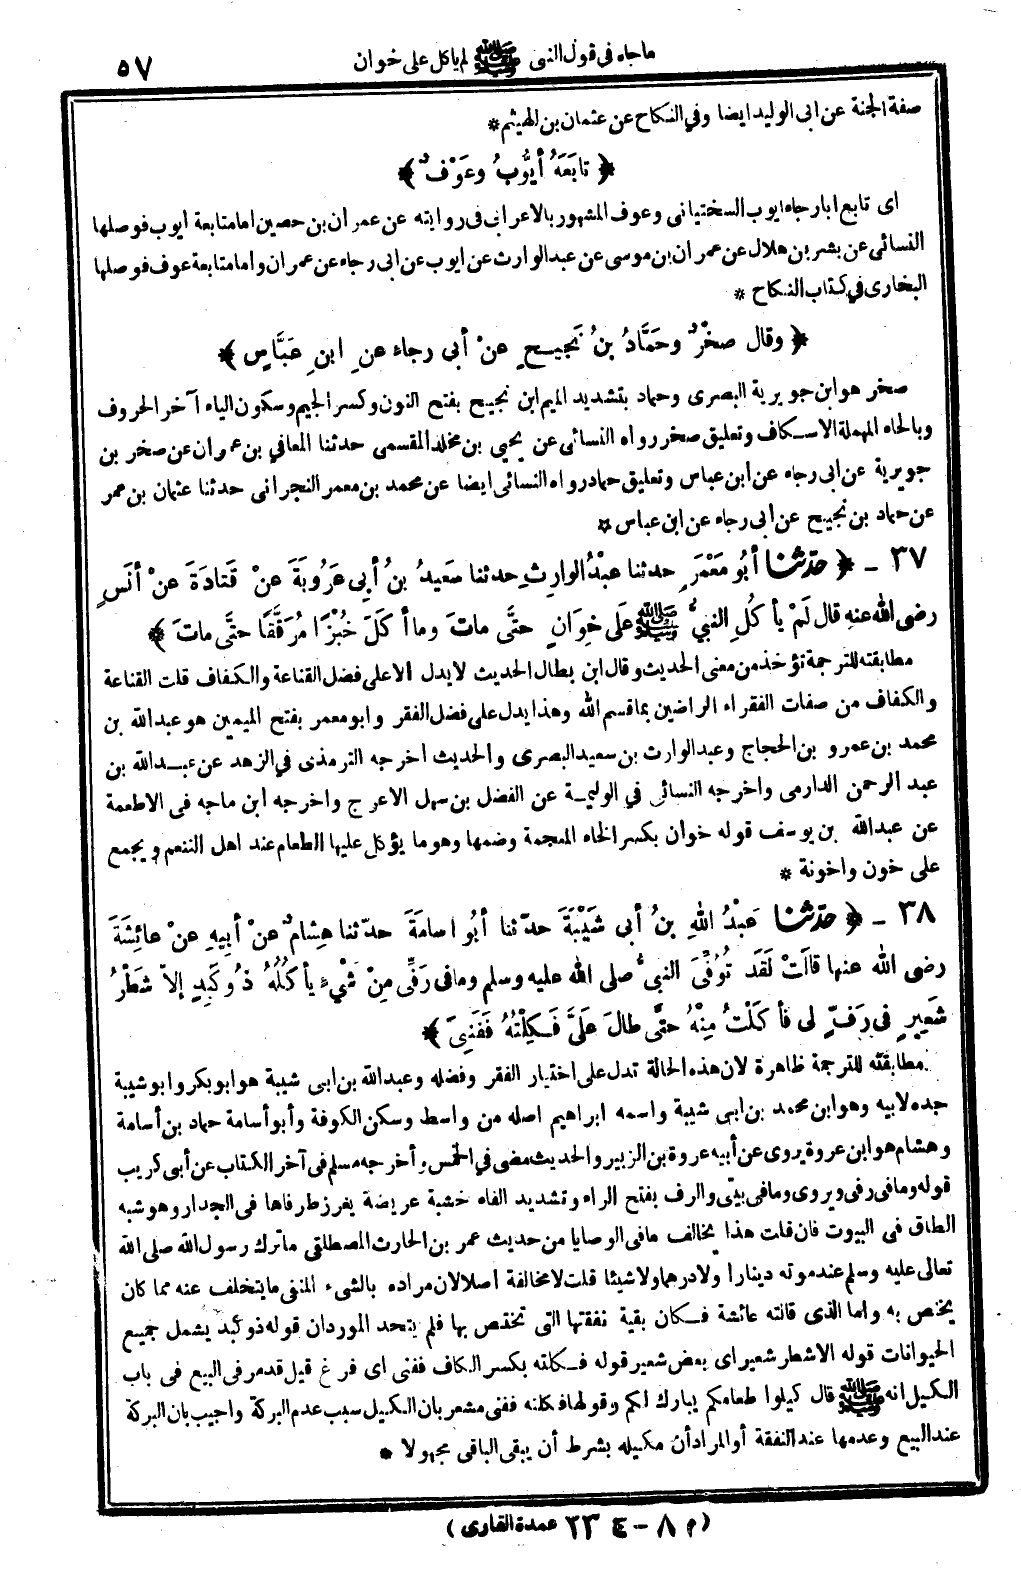 ماجاء في قول النبي ﷺ لم يأكل على خوان ٥٧
صفة الجنة عن ابى الوليد ايضا وفي النكاح عن عثمان بن الهيثم *
﴿ تابَعَهُ أيُّوبُ وعَوْفٌ ﴾
اى تابع ابا رجاء ايوب السختيانى وعوف المشهور بالاعرابى فى روايته عن عمران بن حصين اما متابعة ايوب فوصلها
النسائى عن بشر بن هلال عن عمران بن موسى عن عبد الوارث عن ايوب عن ابى رجاء عن عمران واما متابعة عوف فوصلها
البخارى في كتاب النكاح *
﴿ وقال صخْرٌ وحَمَّادُ بنُ نَجِيحٍ عنْ أبي رجاء عنِ ابنِ عَبَّاسٍ ﴾
صخر هو ابن جويرية البصرى وحماد بتشديد الميم ابن نجيح بفتح النون وكسر الجيم وسكون الياء آخر الحروف
وبالحاء المهملة الاسكاف وتعليق صخر رواه النسائى عن يحيى بن مخلد المقسمى حدثنا المعافي بن عمران عن صخر بن
جويرية عن ابى رجاء عن ابن عباس وتعليق حماد رواه النسائى ايضا عن محمد بن معمر النجرانى حدثنا عثمان بن عمر
عن حماد بن نجيح عن ابى رجاء عن ابن عباس *
٣٧ - ﴿ حدّثنا أبُو مَعْمَرٍ حدثنا عبْدُ الوارِثِ حدثنا سَعِيدُ بنُ أبي عَرُوبَةَ عنْ قَتادَةَ عنْ أنَسٍ
رضى الله عنهِ قال لَمْ يأكُلِ النبيُّ ﷺ عَلَى خِوَانٍ حتَّى ماتَ وما أكَلَ خُبْزًا مُرَقَّقًا حتَّى ماتَ ﴾
مطابقته للترجمة تؤخذ من معنى الحديث وقال ابن بطال الحديث لايدل الا على فضل القناعة والكفاف قلت القناعة
والكفاف من صفات الفقراء الراضين بما قسم الله وهذا يدل على فضل الفقر وابو معمر بفتح الميمين هو عبد الله بن
محمد بن عمرو بن الحجاج وعبد الوارث بن سعيد البصرى والحديث اخرجه الترمذى في الزهد عن عبد الله بن
عبد الرحمن الدارمى واخرجه النسائى في الوليمة عن الفضل بن سهل الاعرج واخرجه ابن ماجه فى الاطعمة
عن عبدالله بن يوسف قوله خوان بكسر الخاء المعجمة وضمها وهو ما يؤكل عليها الطعام عند اهل التنعم ويجمع
على خون واخونة *
٣٨ - ﴿ حدّثنا عَبْدُ اللهِ بنُ أبي شَيْبَةَ حدّثنا أبُو اسامَةَ حدّثنا هِشامٌ عنْ أبِيهِ عنْ عائِشَةَ
رضى الله عنها قالَتْ لَقَد تُوُفِّيَ النبيُّ صلى الله عليه وسلم ومافى رَفِّى مِنْ شَيْءٍ يأكُلُهُ ذُوكَبِدٍ إلاّ شَطْرُ
شَعِيرٍ فى رَفٍّ لى فأكَلْتُ مِنْهُ حتَّى طالَ عَلَىَّ فَكِلْتُهُ فَفَنِىَ ﴾
مطابقته للترجمة ظاهرة لان هذه الحالة تدل على اختيار الفقر وفضله وعبد الله بن ابى شيبة هو ابو بكر وابو شيبة
جده لابيه وهو ابن محمد بن ابى شيبة واسمه ابراهيم اصله من واسط وسكن الكوفة وأبو أسامة حماد بن أسامة
وهشام هو ابن عروة يروى عن أبيه عروة بن الزبير والحديث مضى في الخمس وأخرجه مسلم فى آخر الكتاب عن أبى كريب
قوله وما فى رفى ويروى وما فى بيتى والرف بفتح الراء وتشديد الفاء خشبة عريضة يغرز طرفاها فى الجدار وهو شبه
الطاق فى البيوت فان قلت هذا يخالف مافى الوصايا من حديث عمر بن الحارث المصطلقى ماترك رسول الله صلى الله
تعالى عليه وسلم عند موته دينارا ولا درهما ولا شيئا قلت لا مخالفة اصلا لان مراده بالشىء المنفى ما يتخلف عنه مما كان
يختص به واما الذى قالته عائشة فكان بقية نفقتها التى تختص بها فلم يتحد الموردان قوله ذو كبد يشمل جميع
الحيوانات قوله الا شطر شعير اى بعض شعير قوله فكلته بكسر الكاف ففنى اى فرغ قيل قد مر فى البيع فى باب
الكيل انه ﷺ قال كيلوا طعامكم يبارك لكم وقولها فكلته ففنى مشعر بان الكيل سبب عدم البركة واجيب بان البركة
عند البيع وعدمها عند النفقة أو المراد أن مكيله بشرط أن يبقى الباقى مجهولا *
(م ٨ - ٤ ٢٣ عمدة القارى)